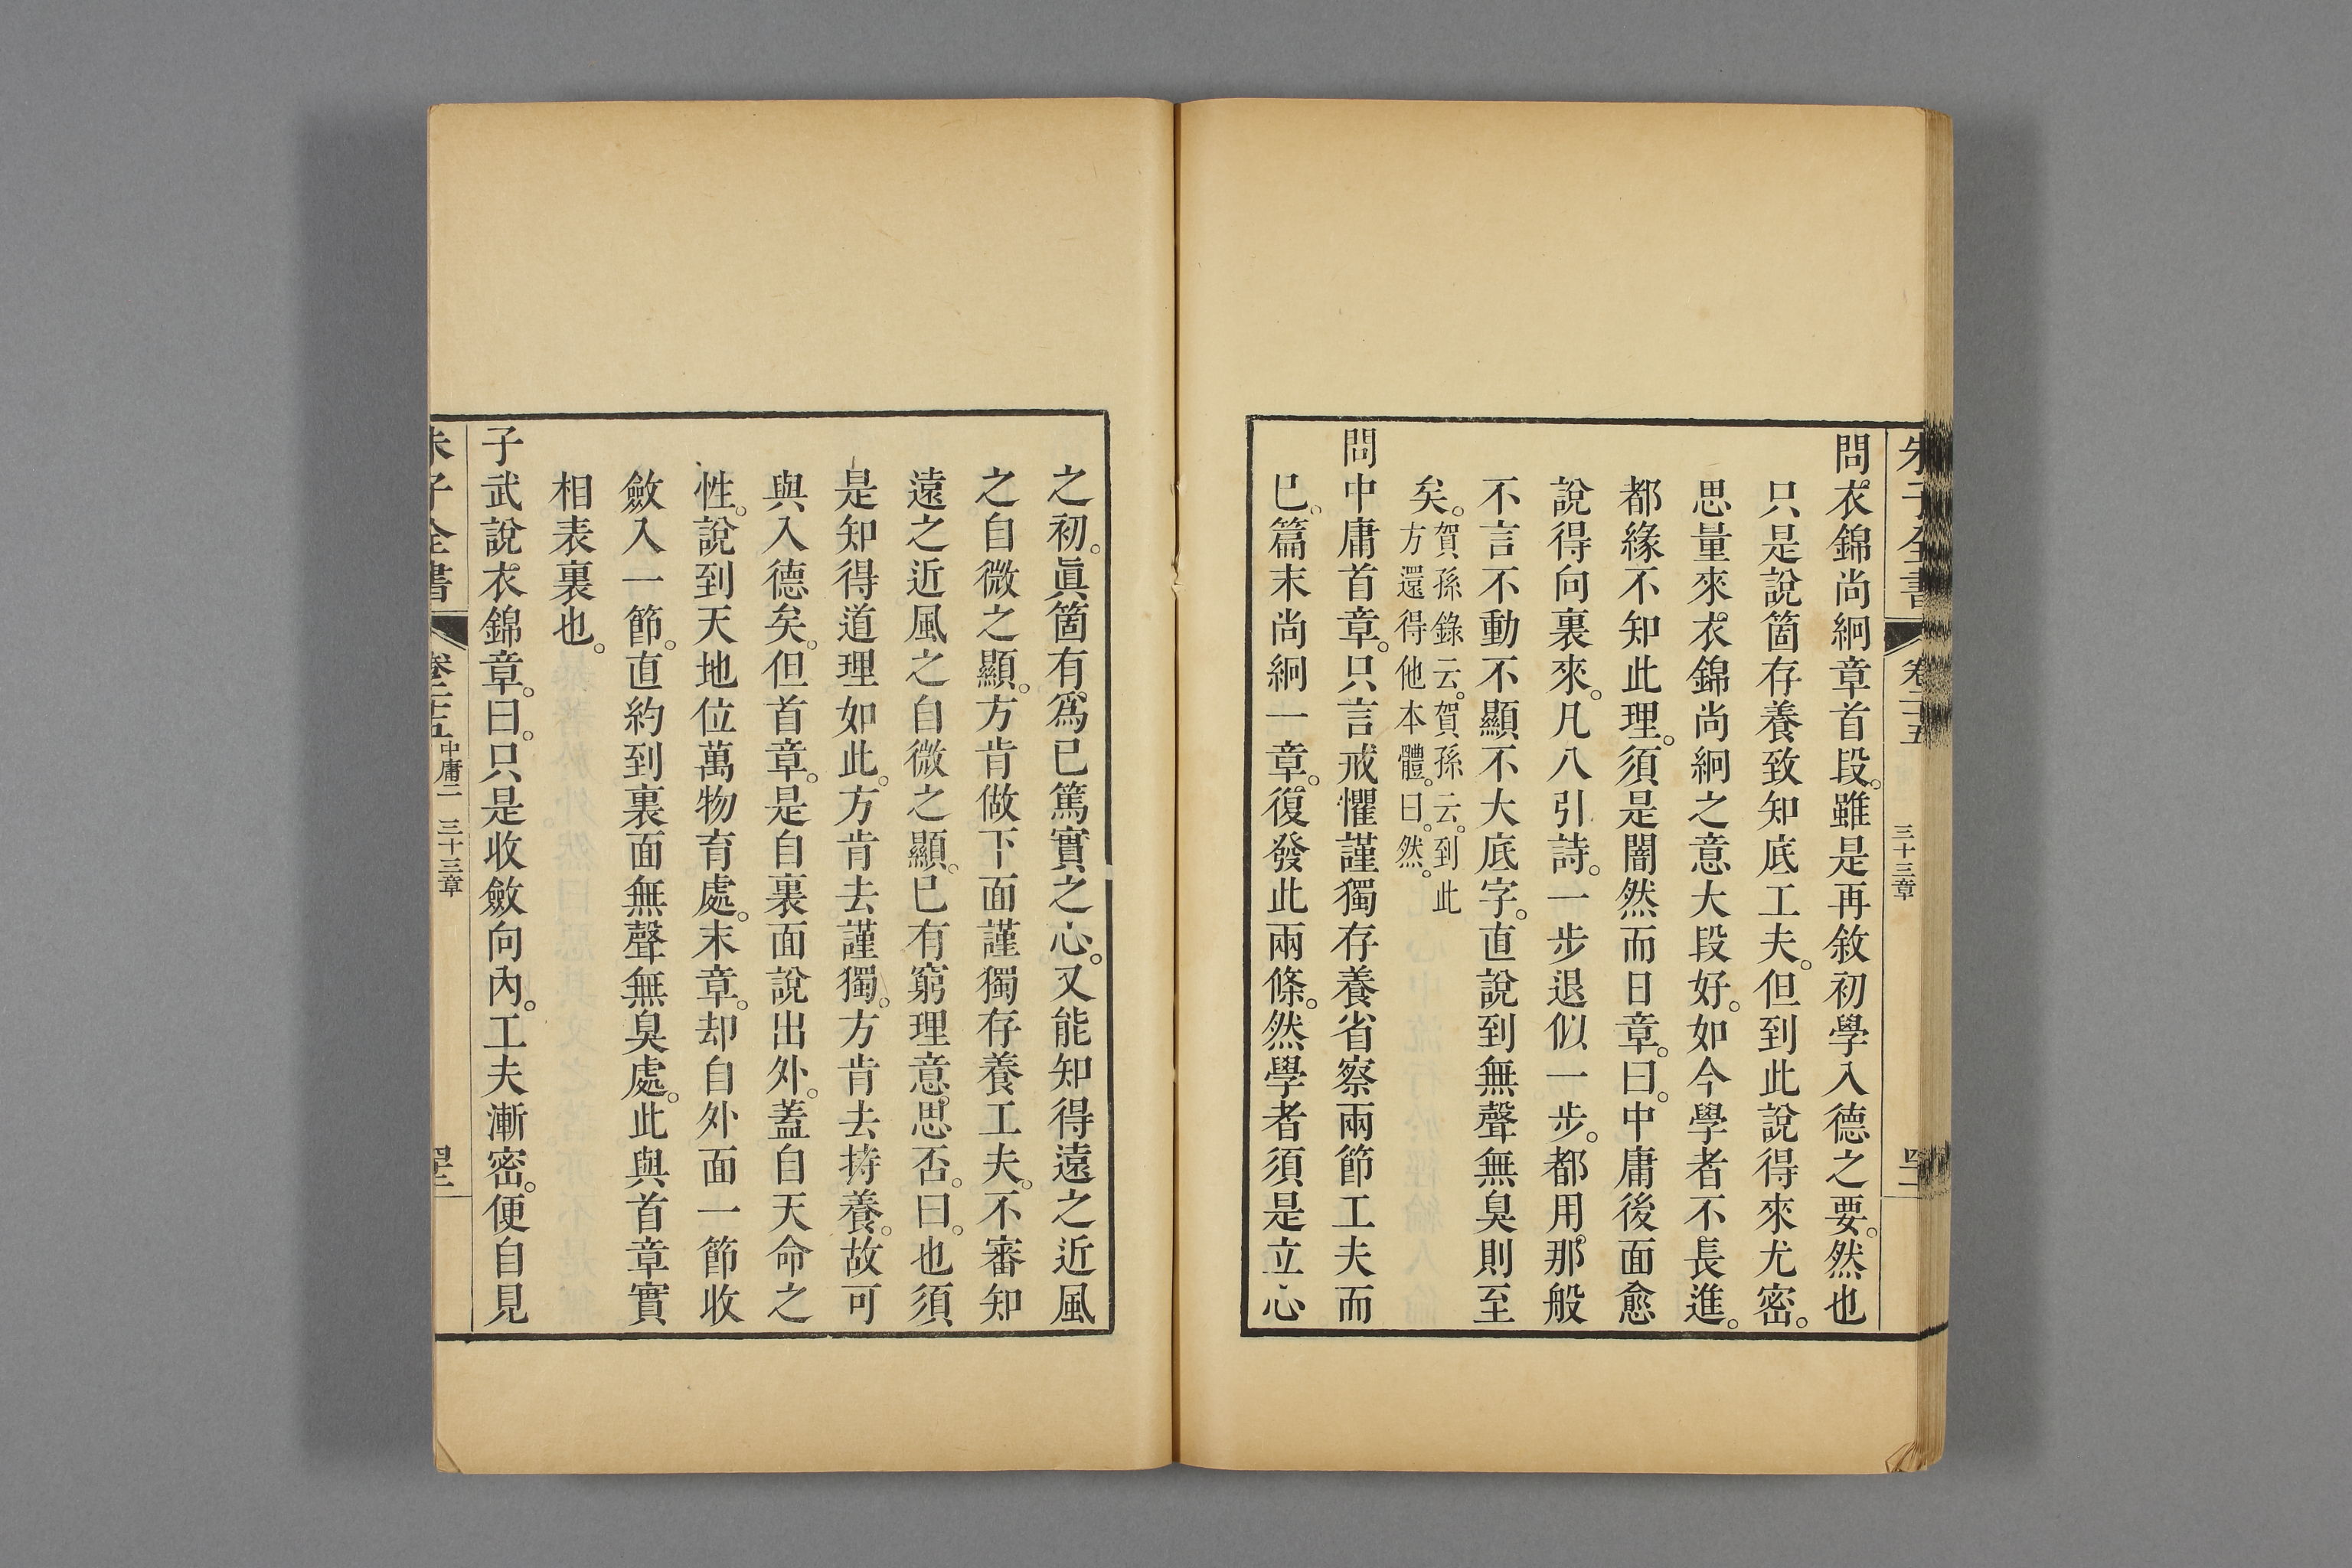 朱子全書 卷二十五 三十三章
問衣錦尚絅章首段。雖是再敘初學入德之要。然也
只是說箇存養致知底工夫。但到此說得來尤密。
思量來。衣錦尚絅之意大段好。如今學者不長進。
都緣不知此理。須是闇然而日章。曰。中庸後面愈
說得向裏來。凡八引詩。一步退似一步。都用那般
不言不動不顯不大底字。直說到無聲無臭則至
矣。賀孫錄云。賀孫云。到此
方還得他本體。曰。然。
問中庸首章。只言戒懼謹獨存養省察兩節工夫而
已。篇末尚絅一章。復發此兩條。然學者須是立心
之初。眞箇有爲己篤實之心。又能知得遠之近風
之自微之顯。方肯做下面謹獨存養工夫。不審知
遠之近風之自微之顯。已有窮理意。思否。曰。也須
是知得道理如此。方肯去謹獨。方肯去持養。故可
與入德矣。但首章。是自裏面說出外。蓋自天命之
性。說到天地位萬物育處。末章。却自外面一節收
斂入一節。直約到裏面無聲無臭處。此與首章實
相表裏也。
子武說衣錦章。曰。只是收斂向內。工夫漸密。便自見
朱子全書 卷二十五 中庸二 三十三章